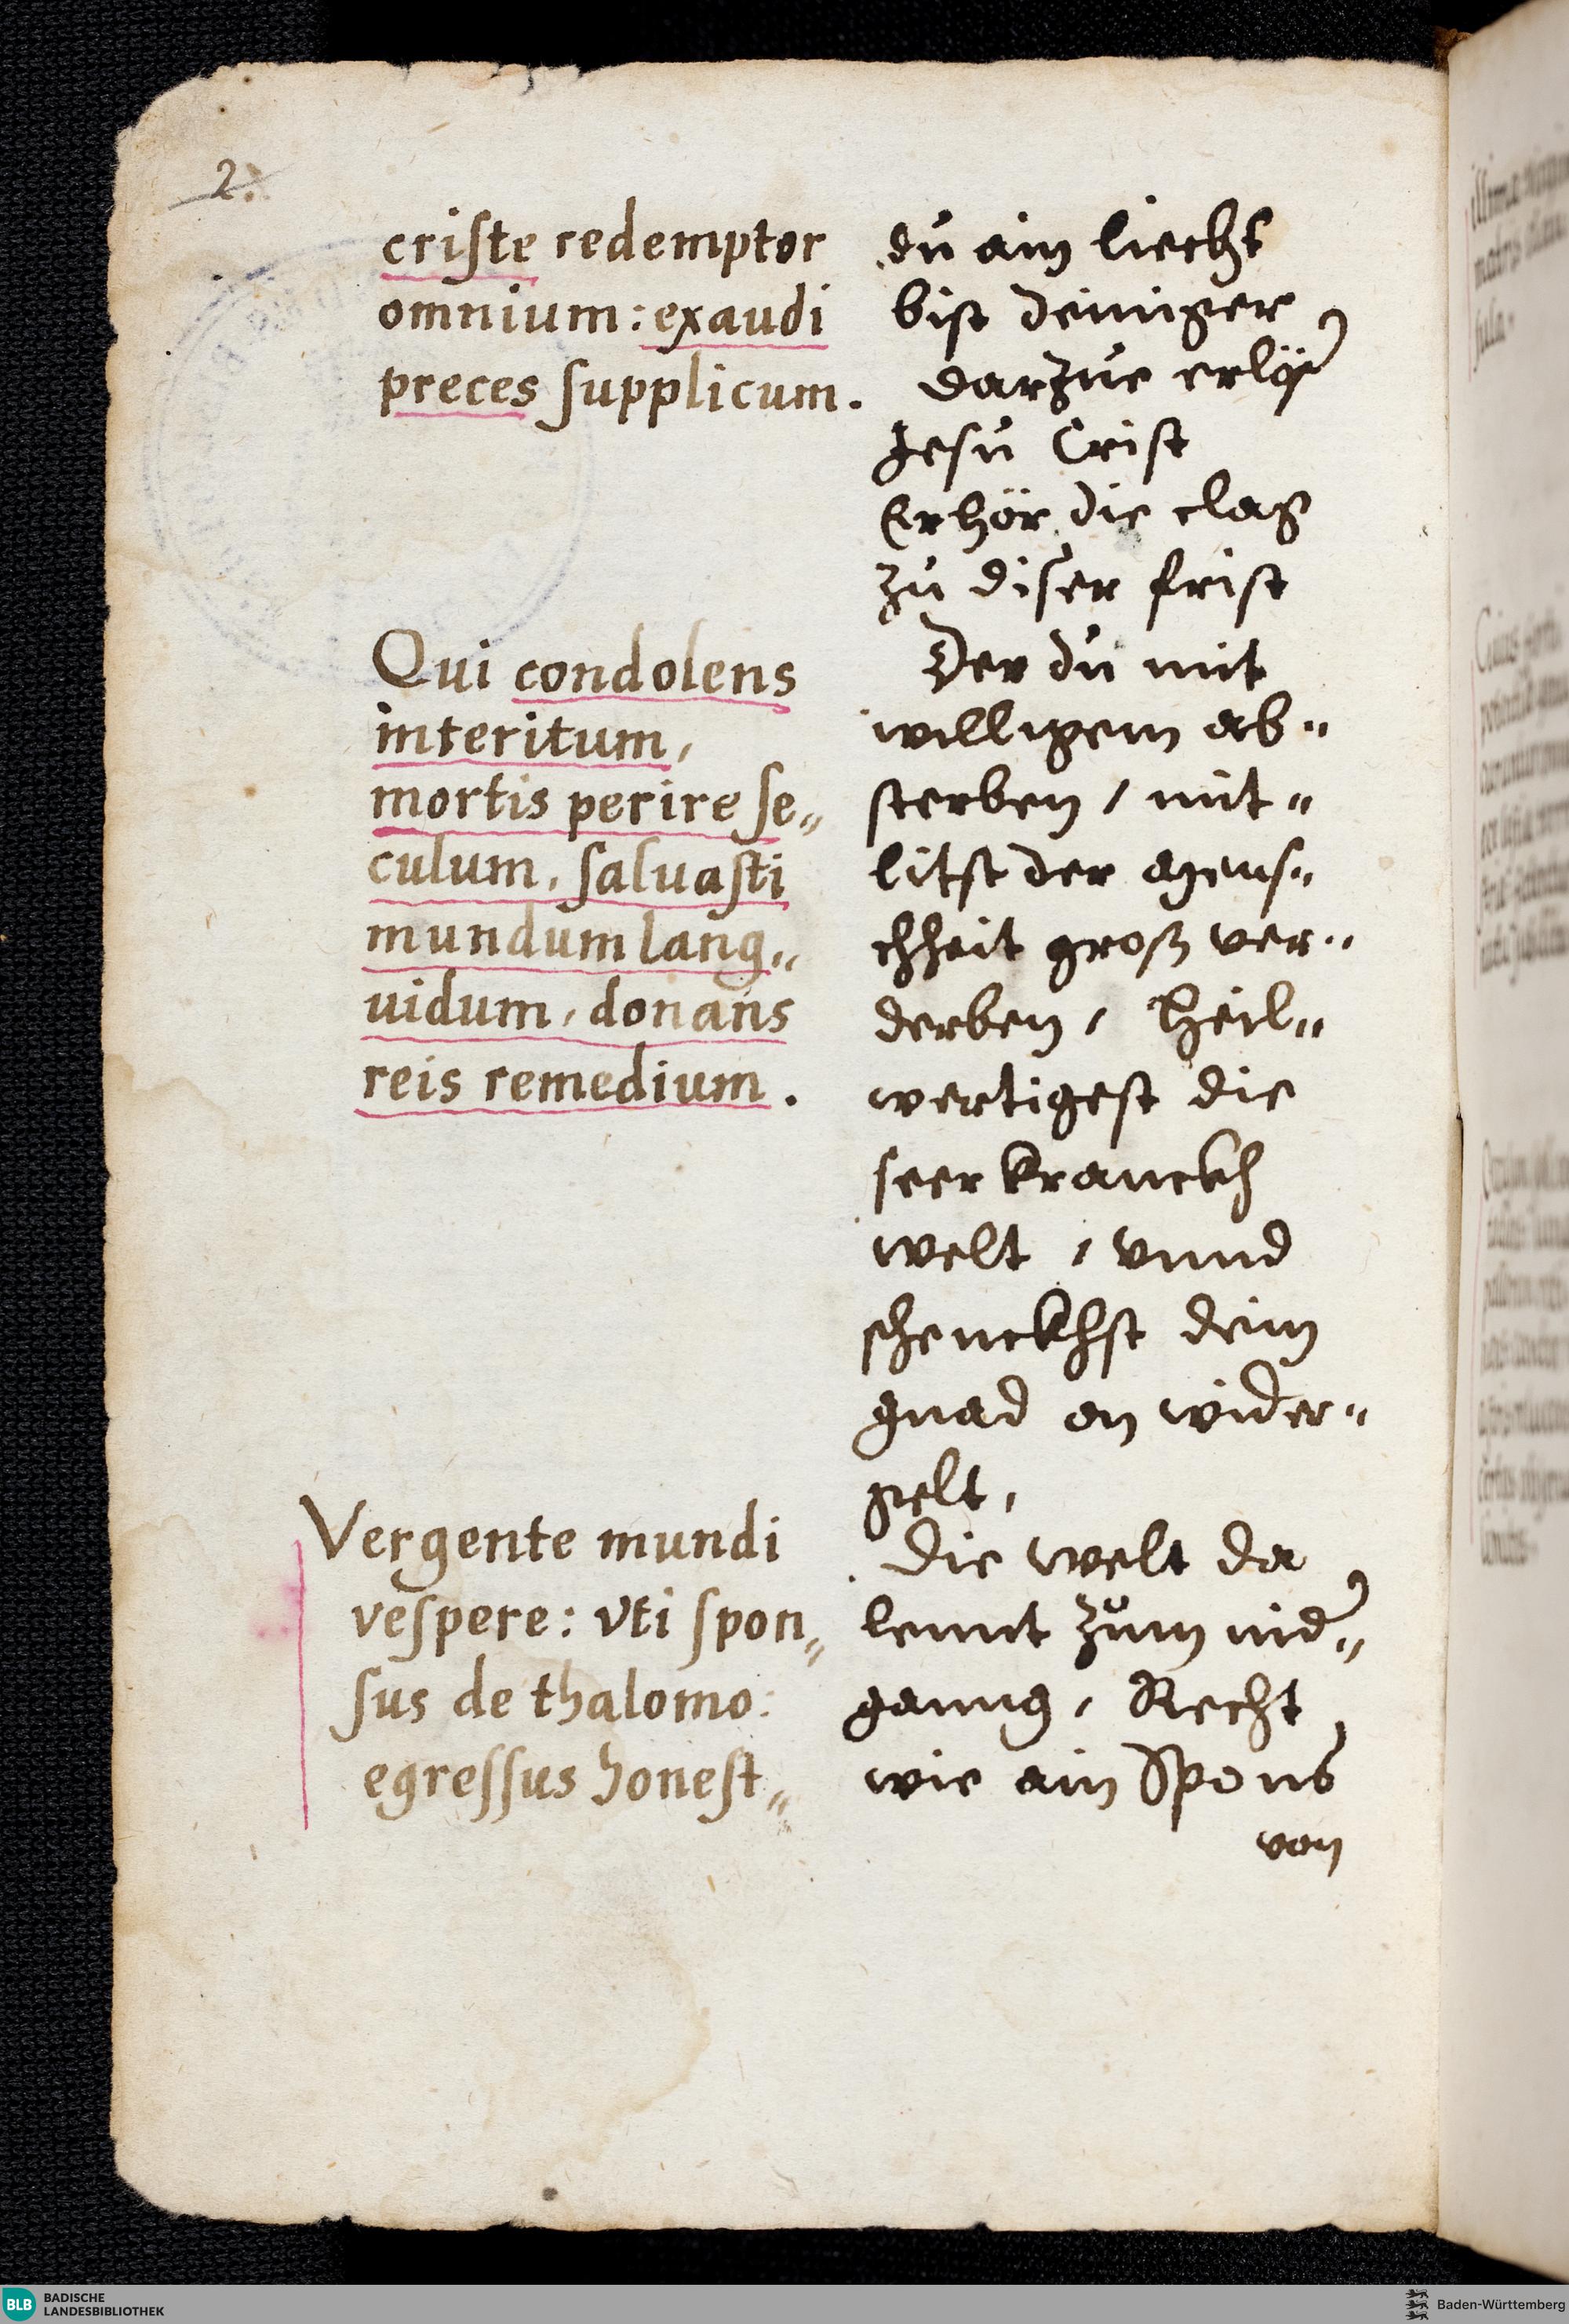 2.
criſte redemptor
omnium: exaudi
preces ſupplicum.
Qui condolens
interitum,
mortis perire ſe„
culum, ſaluaſti
mundum lang„
uidum, donans
reis remedium.
Vergente mundi
veſpere: vti ſpon„
ſus de thalomo:
egreſſus honeſt„
du ain liecht
biſt deiniger
darzue
Jeſu Criſt
Erhör die clag
zu diſer friſt
Der du mit
willigem ab„
ſterben / mit„
litſt der
chheit groß ver„
derben / Heil„
wertigeſt die
ſeer kranckh
welt / vnnd
ſchenckhſt dein
gnad on wider„
gelt,
Die welt da
lennt zum nid„
ganng / Recht
wie ain Spons
von
BLB BADISCHE
LANDESBIBLIOTHEK
Baden-Württemberg